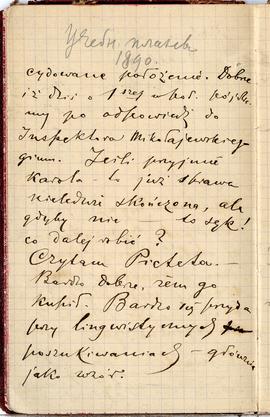 1890.
cydowane położenie. Dobrze
iż dziś o 1szej w poł. pójdzie-
my po odpowiedź do
Inspektora Mikołajewskiego
gimn. Jeśli przyjmie
Karola – to już sprawa
niebędzie skończona, ale
gdyby nie to sęk!
co dalej robić?
Czytam Picteta. –
Bardzo dobrze, żem go
kupił. Bardzo się przyda
przy lingwistycznych
poszukiwaniach – głównie
jako wzór.